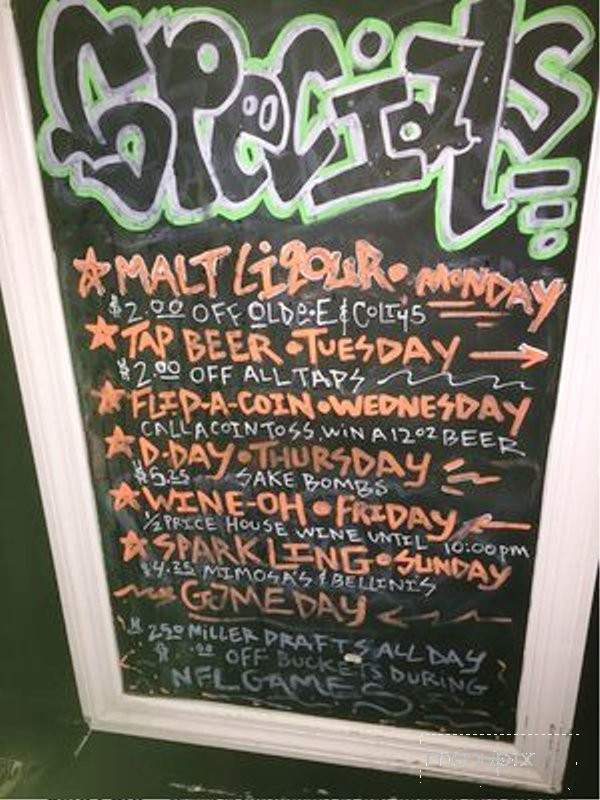 Specials
MALT LiQOUR • MONDAY
$2.00 OFF OLD E & COLT 45
TAP BEER • TUESDAY
$2.00 OFF ALL TAPS
FLIP-A-COIN • WEDNESDAY
CALL A COIN TOSS. WIN A 12oz BEER
D-DAY • THURSDAY
$5.25 SAKE BOMBS
WINE-OH • FRIDAY
1/2 PRICE HOUSE WINE UNTIL 10:00pm
SPARKLING • SUNDAY
$4.25 MIMOSA'S & BELLINI'S
GAMEDAY
$2.50 MILLER DRAFTS ALL DAY
OFF BUCKETS DURING
NFL GAMES